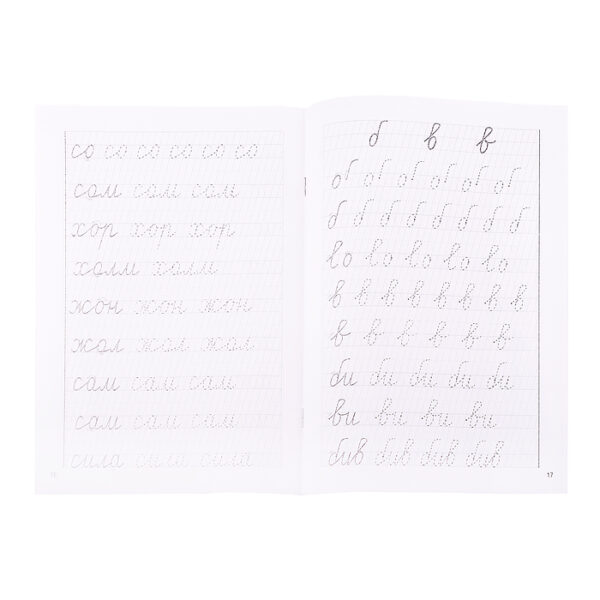 со со со со со со
сом сом сом
хор хор хор
холм холм
жон жон жон
жал жал жал
сом сам сам
сам сам сам
сила сила сила
16
б в в
б б б б б б б
в в в в в в в
в в в в в в
би би би би би
ви ви ви ви
бив бив бив бив
17